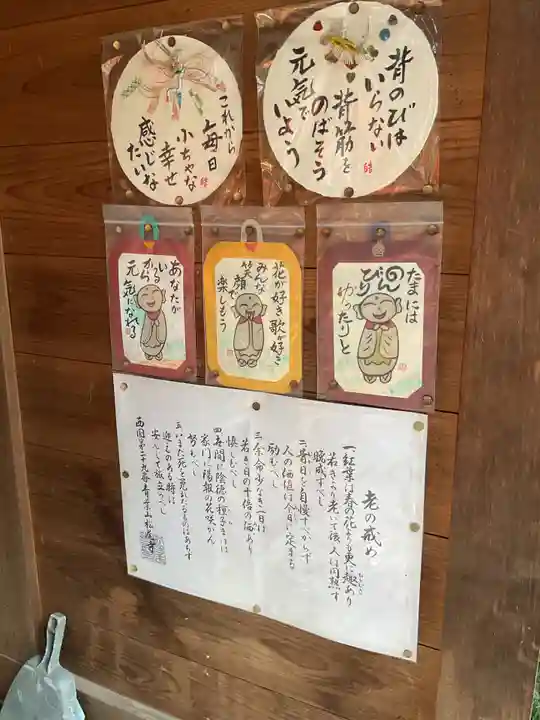 背のびは
いらない
背筋を
のばそう
元気で
いよう
これから
毎日
小ちゃな
幸せ
感じな
たいな
たまには
のんびり
ゆったりと
花が好き歌が好き
みんな
笑顔で
楽しもう
あなたが
いる
から
元気になれる
老の戒め
一、紅葉は春の花よりも更に趣あり
若きより老いて後、人は円熟す
晩成すべし
二、昔日を自慢すべからず
人の価値は今日に定まる
励むべし
三、余命少なき一日は
若き日の千倍の価あり
惜しむべし
四、春間に陰徳の種子をまけば
家門に陽報の花咲かん
努むべし
五、いまだ死を免れたるものはあらず
迎えのある時は
安んじて旅立つべし
西国第二十九番青葉山松尾寺